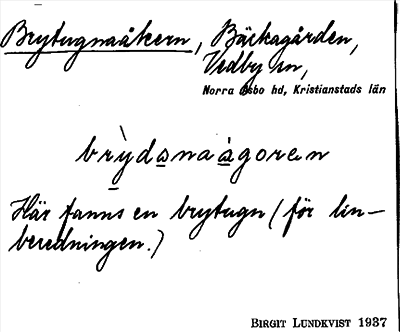 Brytugnaåkern, Bäckagården,
Vedby sn,
Norra Åsbo hd, Kristianstads län
brỳdsnaàgoren
Här fanns en brytugn (för lin-
beredningen.)
BIRGIT LUNDKVIST 1937